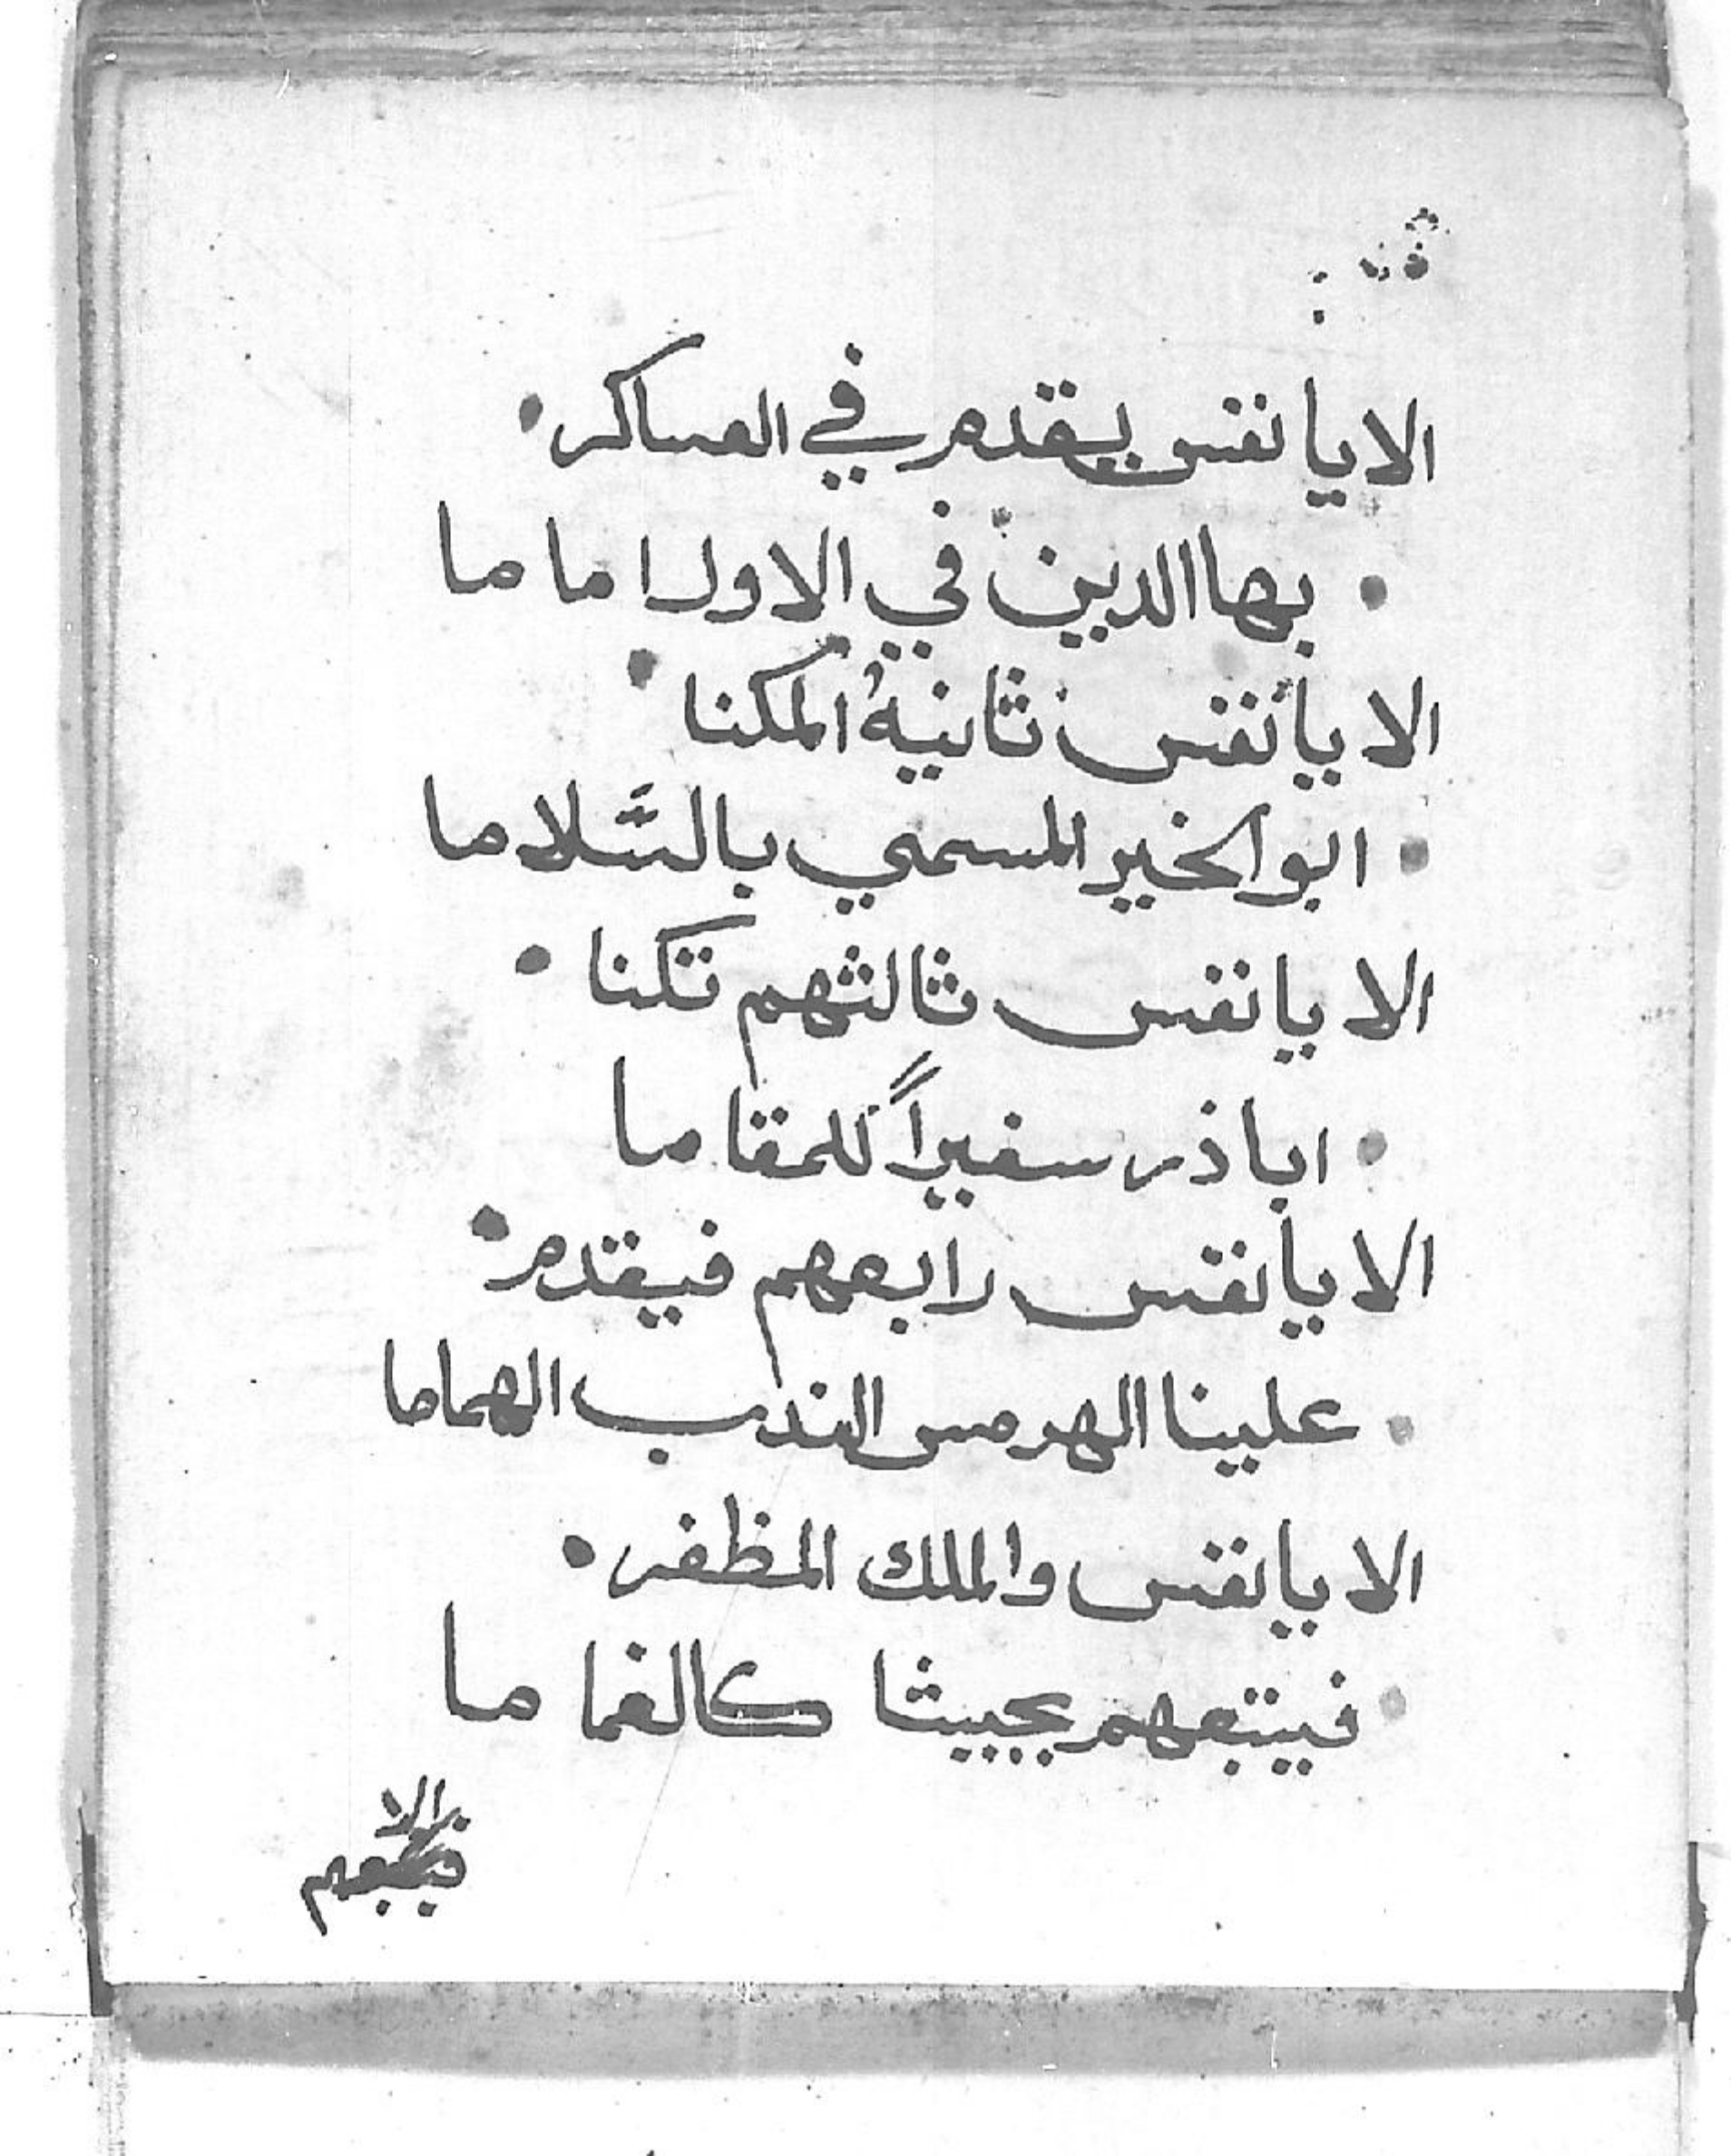 الا يا نفس يقدم في العساكر •
• بها الدين في الاول اما ما
الا يا نفس ثانيهُ المكنا •
• ابو الخير المسمي بالسَّلاما
الا يا نفس ثالثهم تكنا •
• ابا ذر سفيراً للمقاما
الا يا نفس رابعهم فيقدم •
• علينا الهرمس الندب الهماما
الا يا نفس والملك المظفر •
• فيتبعهم بجيشا كالغما ما
الا